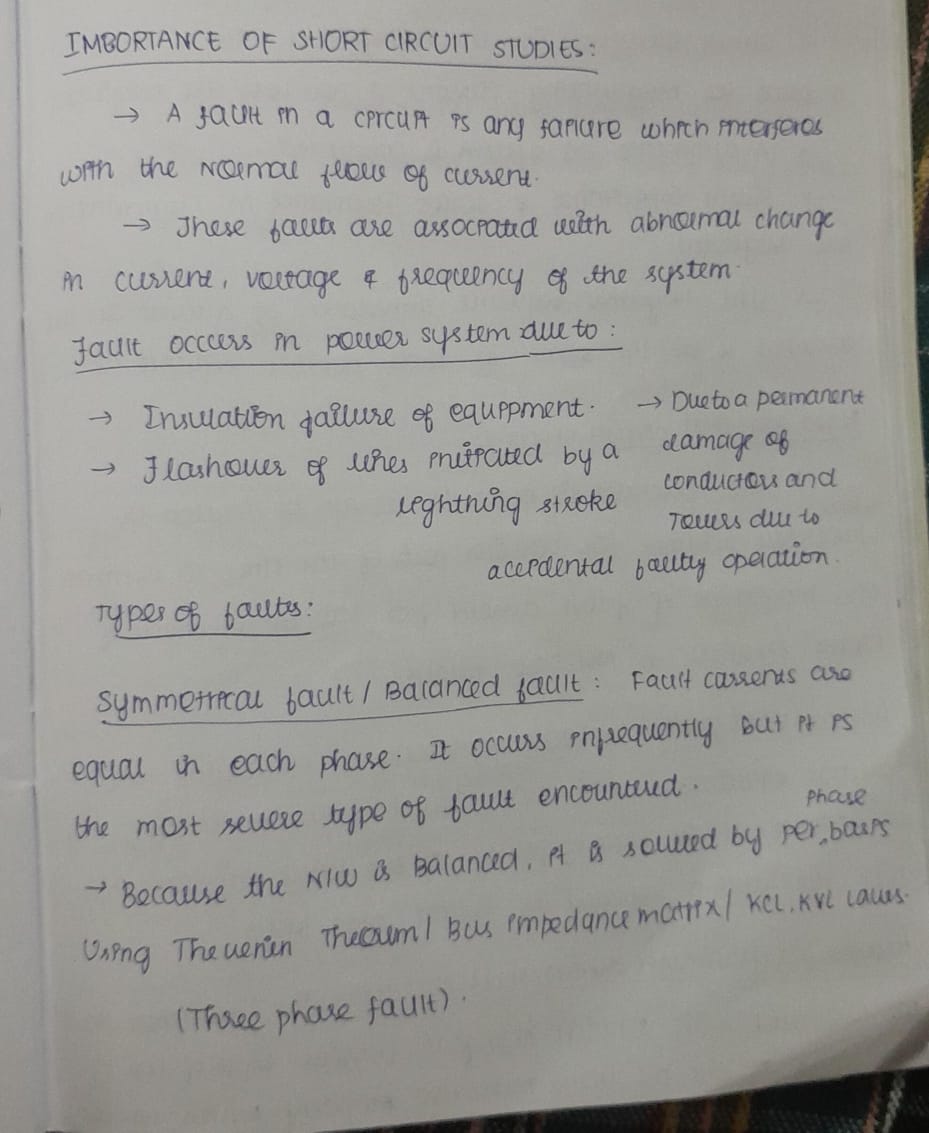 IMPORTANCE OF SHORT CIRCUIT STUDIES:
→ A fault in a circuit is any failure which interferes
with the normal flow of current.
→ These faults are associated with abnormal change
in current, voltage & frequency of the system.
Fault occurs in power system due to:
→ Insulation failure of equipment.
→ Flashover of lines initiated by a
lightning stroke
→ Due to a permanent
damage of
conductors and
Towers due to
accidental faulty operation.
Types of faults:
Symmetrical fault / Balanced fault: Fault currents are
equal in each phase. It occurs infrequently But it is
the most severe type of fault encountered.
→ Because the N/W is Balanced, it is solved by per phase basis
Using Thevenin Theorem / Bus impedance matrix / KCL, KVL laws.
(Three phase fault).